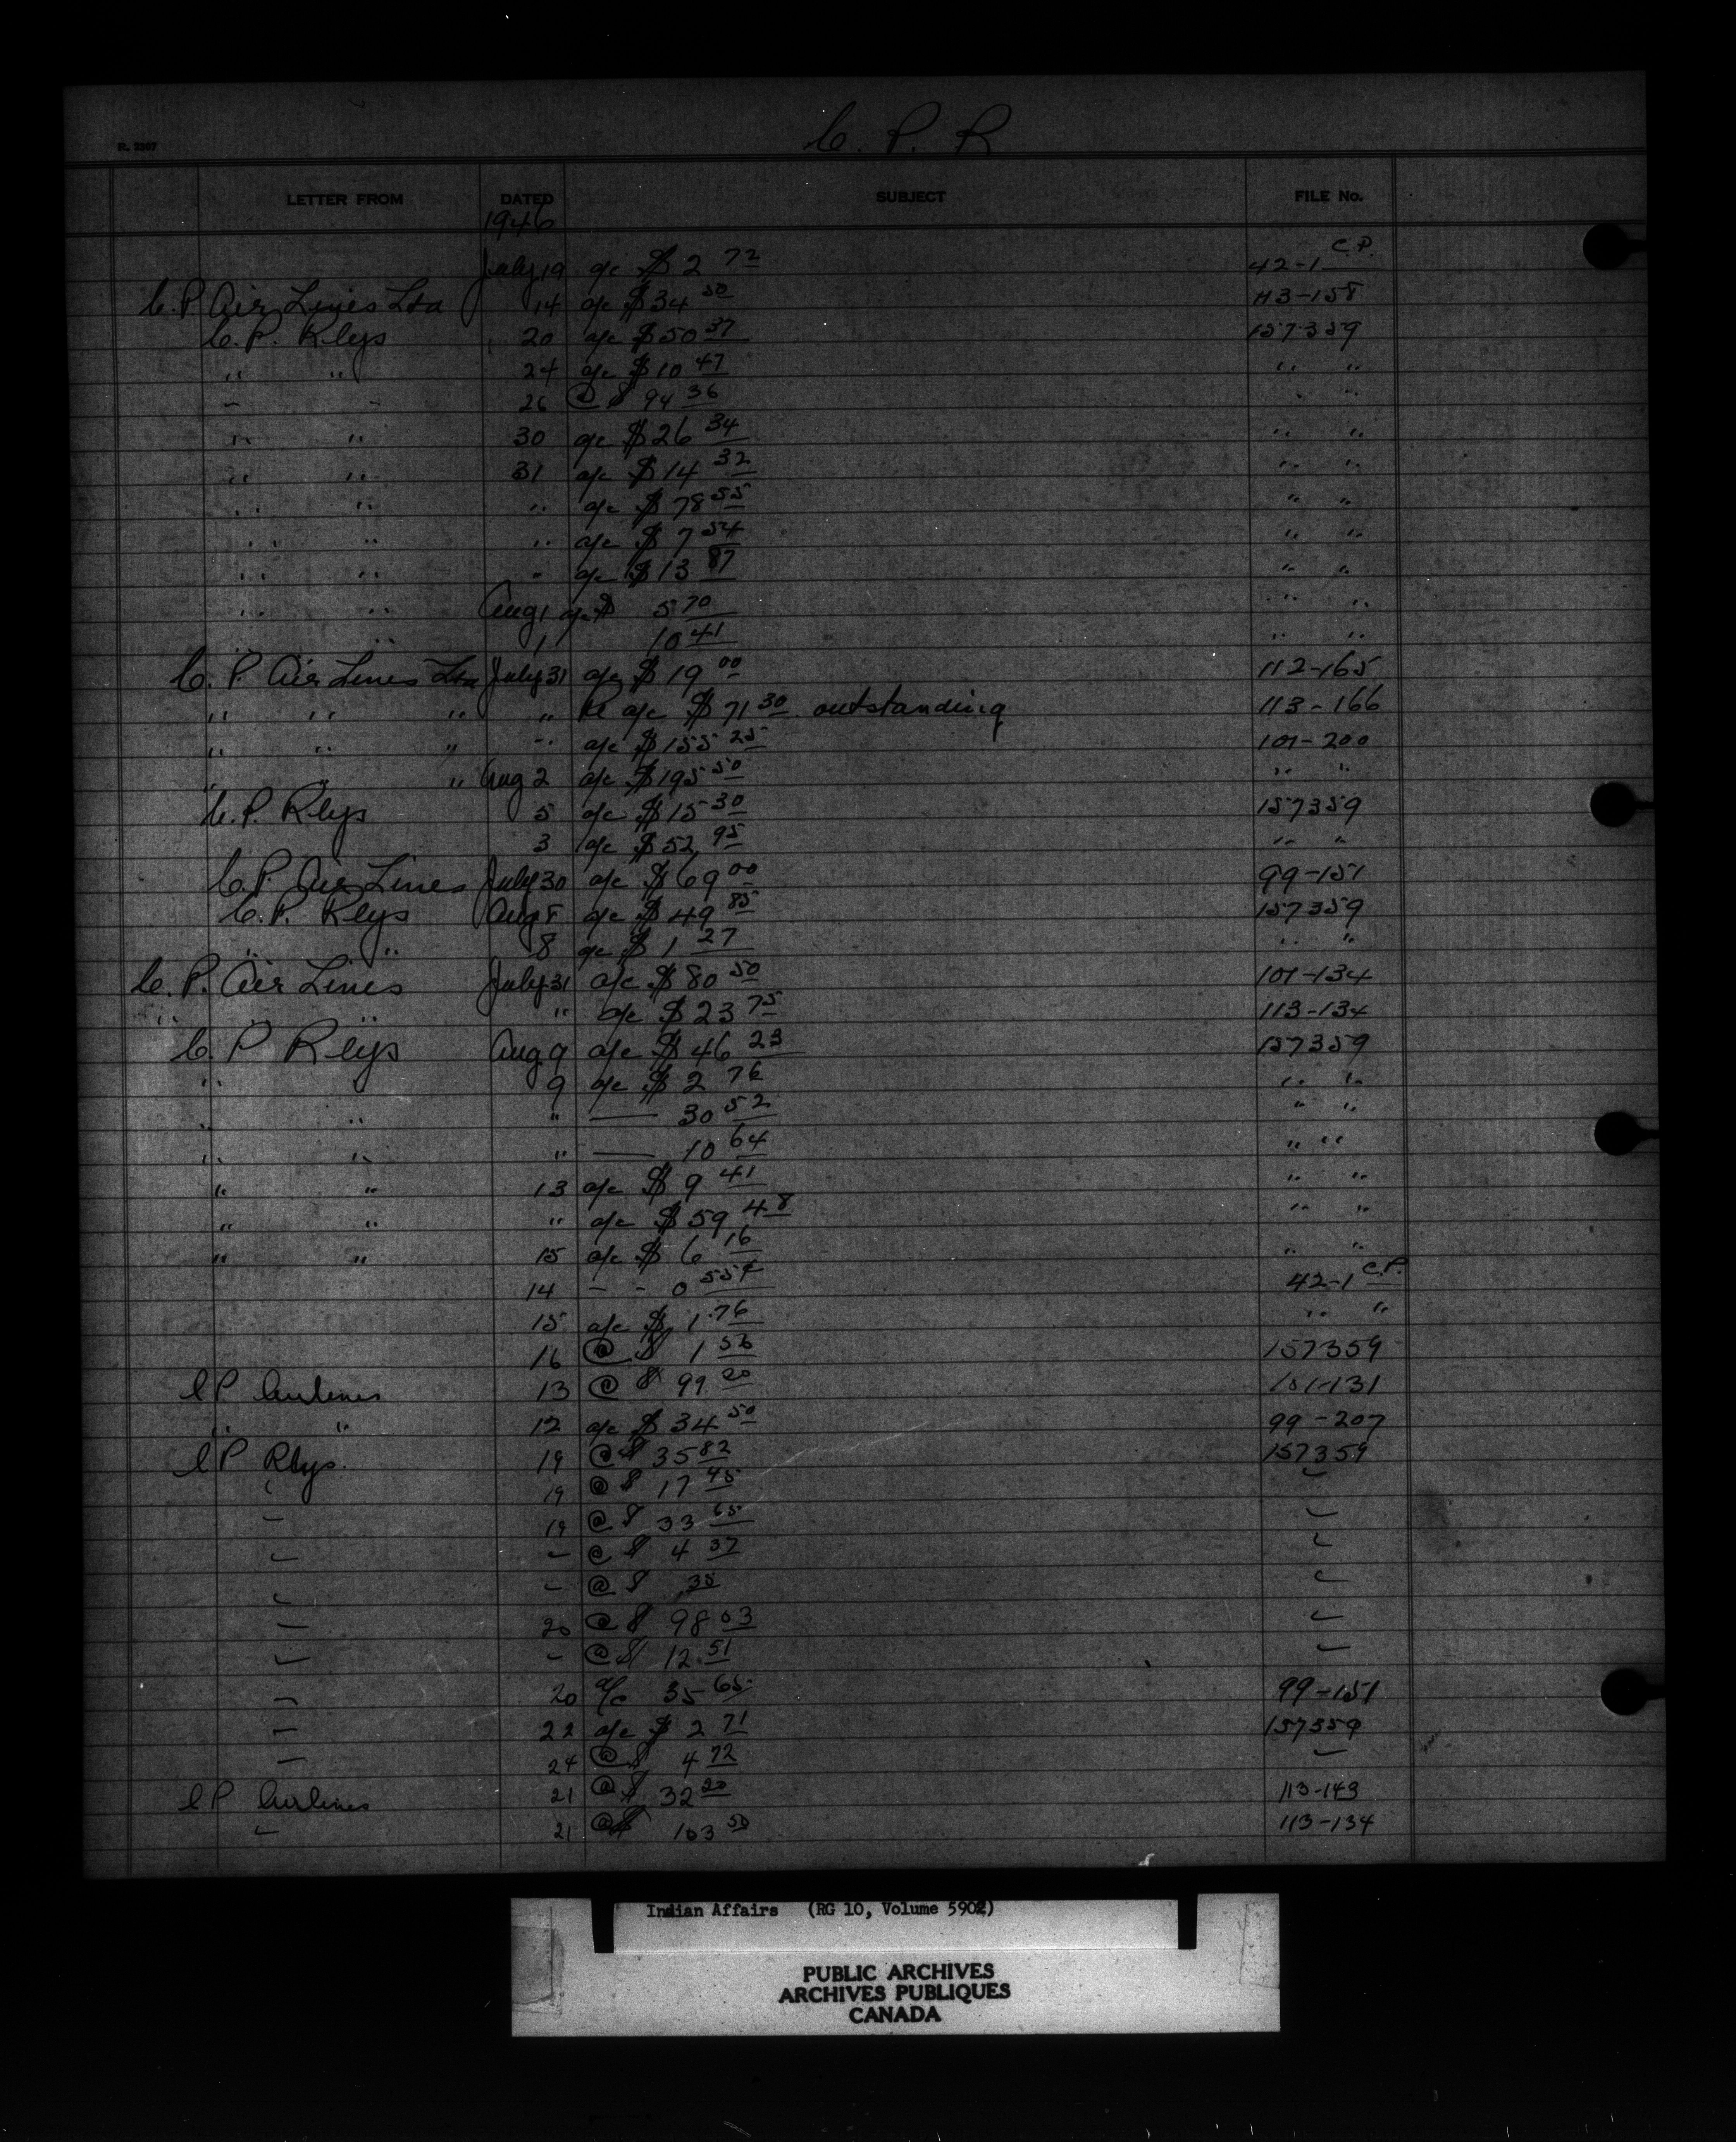 C. P. R
R. 2307
LETTER FROM DATED SUBJECT FILE No.
1946
July 19 a/c $2 72 42-1 C.P.
C. P. Air Lines Ltd 14 a/c $34 50 113-158
C. P. Rlys 20 a/c $50 37 157359
" " 24 a/c $10 47 " "
" " 26 @ $ 94 36 " "
" " 30 a/c $26 34 " "
" " 31 a/c $14 32 " "
" " " a/c $78 55 " "
" " " a/c $7 54 " "
" " " a/c $13 87 " "
" " Aug 1 a/c $ 5 70 " "
" " 1 10 41 " "
C. P. Air Lines Ltd July 31 a/c $19 00 112-165
" " " " Re a/c $71 30 outstanding 113-166
" " " " a/c $155 25 101-200
" " Aug 2 a/c $195 50 " "
C. P. Rlys 5 a/c $15 30 157359
3 a/c $52 95 " "
C. P. Air Lines July 30 a/c $69 00 99-151
C. P. Rlys Aug 8 a/c $49 85 157359
" " 8 a/c $1 27 " "
C. P. Air Lines July 31 a/c $80 50 101-134
" " " a/c $23 75 113-134
C. P Rlys Aug 9 a/c $46 23 157359
" 9 a/c $2 76 " "
" " " — 30 52 " "
" " " — 10 64 " "
" " 13 a/c $9 41 " "
" " " a/c $59 48 " "
" " 15 a/c $6 16 " "
14 - - 0 55¢ 42-1 C.P.
15 a/c $1.76 " "
16 @ $ 1 56 157359
C P Airlines 13 @ $ 99 20 101-131
" " 12 a/c $34 50 99-207
C P Rlys. 19 @ $ 35 82 157359
" 19 @ $ 17 45 "
" 19 @ $ 33 65 "
" " @ $ 4 37 "
" " @ $ .35 "
" 20 @ $ 98 03 "
" " @ $ 12.51 "
" 20 a/c 35 65 99-151
" 22 a/c $2 71 157359
" 24 @ $ 4 72 "
C P Airlines 21 @ $ 32 20 113-143
" 21 @ $ 103 50 113-134
Indian Affairs (RG 10, Volume 5902)
PUBLIC ARCHIVES
ARCHIVES PUBLIQUES
CANADA